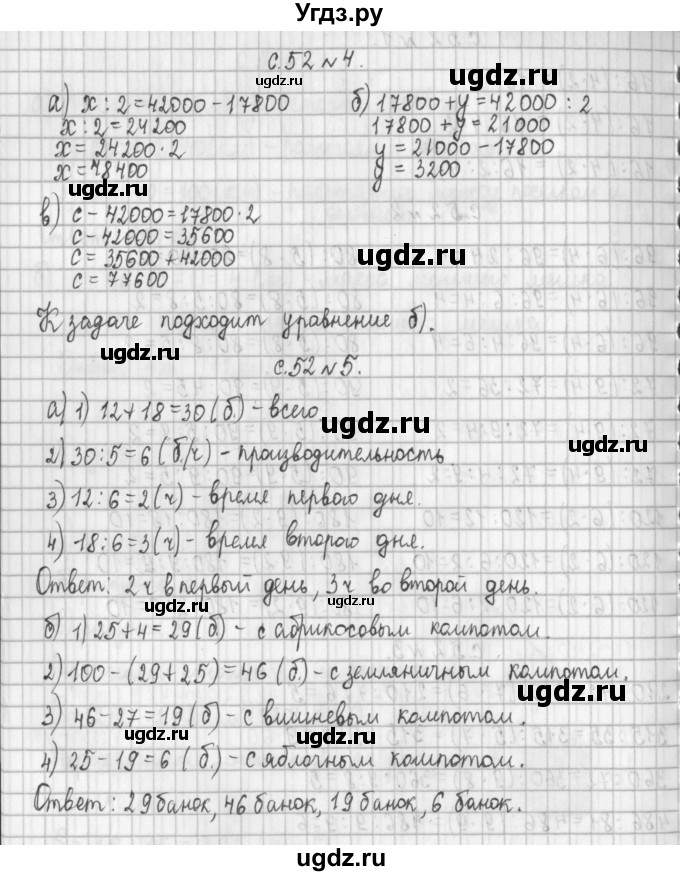 Угдз.ру
с.52 №4.
ugdz.ru
а) x : 2 = 42000 - 17800
x : 2 = 24200
x = 24200 · 2
x = 48400
ugdz.ru
б) 17800 + y = 42000 : 2
17800 + y = 21000
y = 21000 - 17800
y = 3200
ugdz.ru
ugdz.ru
в) c - 42000 = 17800 · 2
c - 42000 = 35600
c = 35600 + 42000
c = 77600
ugdz.ru
К задаче подходит уравнение б).
ugdz.ru
с.52 №5.
а) 1) 12 + 18 = 30 (б.) - всего
ugdz.ru
ugdz.ru
2) 30 : 5 = 6 (б./ч) - производительность
3) 12 : 6 = 2 (ч) - время первого дня.
ugdz.ru
4) 18 : 6 = 3 (ч) - время второго дня.
Ответ: 2 ч в первый день, 3 ч во второй день.
ugdz.ru
б) 1) 25 + 4 = 29 (б.) - с абрикосовым компотом.
2) 100 - (29 + 25) = 46 (б.) - с земляничным компотом.
ugdz.ru
3) 46 - 27 = 19 (б) - с вишневым компотом.
ugdz.ru
ugdz.ru
4) 25 - 19 = 6 (б.) - с яблочным компотом.
Ответ: 29 банок, 46 банок, 19 банок, 6 банок.
ugdz.ru